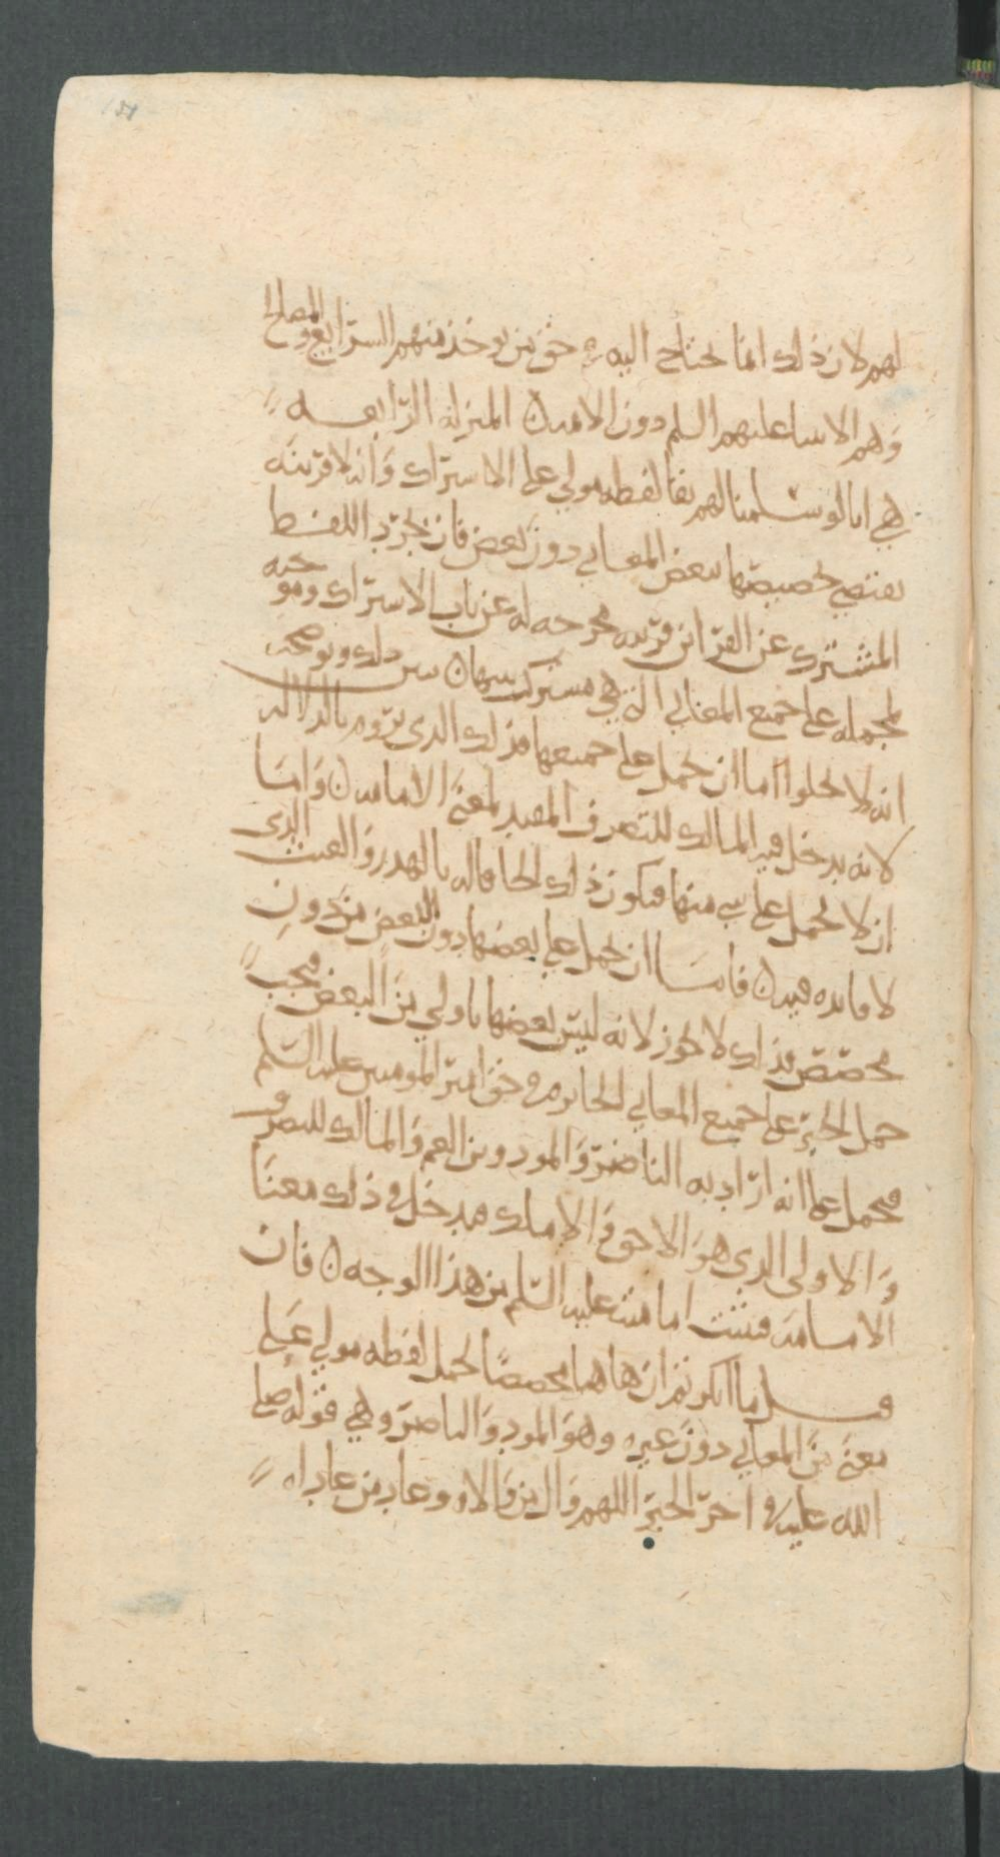 لهم لان ذلك انما يحتاج اليه في حق من يوخذ منهم الشرايع والمصالح
وهم الانبيا عليهم السلم دون الامه ن المنزلة الرابعه
هي انا لو سلمنا لهم بقا لفظه مولى على الاشتراك وانه لا قرينه
تقتضي تخصيصها ببعض المعاني دون بعض فان تجرد اللفظ
المشترك عن القراين قرينه مخرجه له عن باب الاشتراك وموجبه
لحمله على جميع المعاني التي هي مشترك بينها ن يبين ذلك ويوضحه
انه لا يخلوا اما ان يحمل على جميعها فذلك الذي نروم بالدلاله
لانه يدخل فيه المالك للتصرف المفيد لمعنى الامامه ن واما
ان لا يحمل على شي منها فيكون ذلك الحاقا له بالهدر والعبث الذي
لا فايده فيه ن فاما ان يحمل على بعضها دون البعض من دون
مخصص فذلك لا يجوز لانه ليس بعضها باولى من البعض فيجب
حمل الخبر على جميع المعاني الجايزه في حق امير المومنين عليه السلم
فيحمل على انه اراد به الناصر والمود وبن العم والمالك للتصرف
والاولى الذي هو الاحق والاملك فيدخل في ذلك معنا
الامامه فتثبت امامته عليه السلم من هذا الوجه ن فان
قيل ما انكرتم ان هاهنا مخصصا لحمل لفظه مولى على
معنى من المعاني دون غيره وهو المود والناصر وهي قوله صلى
الله عليه في اخر الخبر اللهم وال من والاه وعاد من عاداه